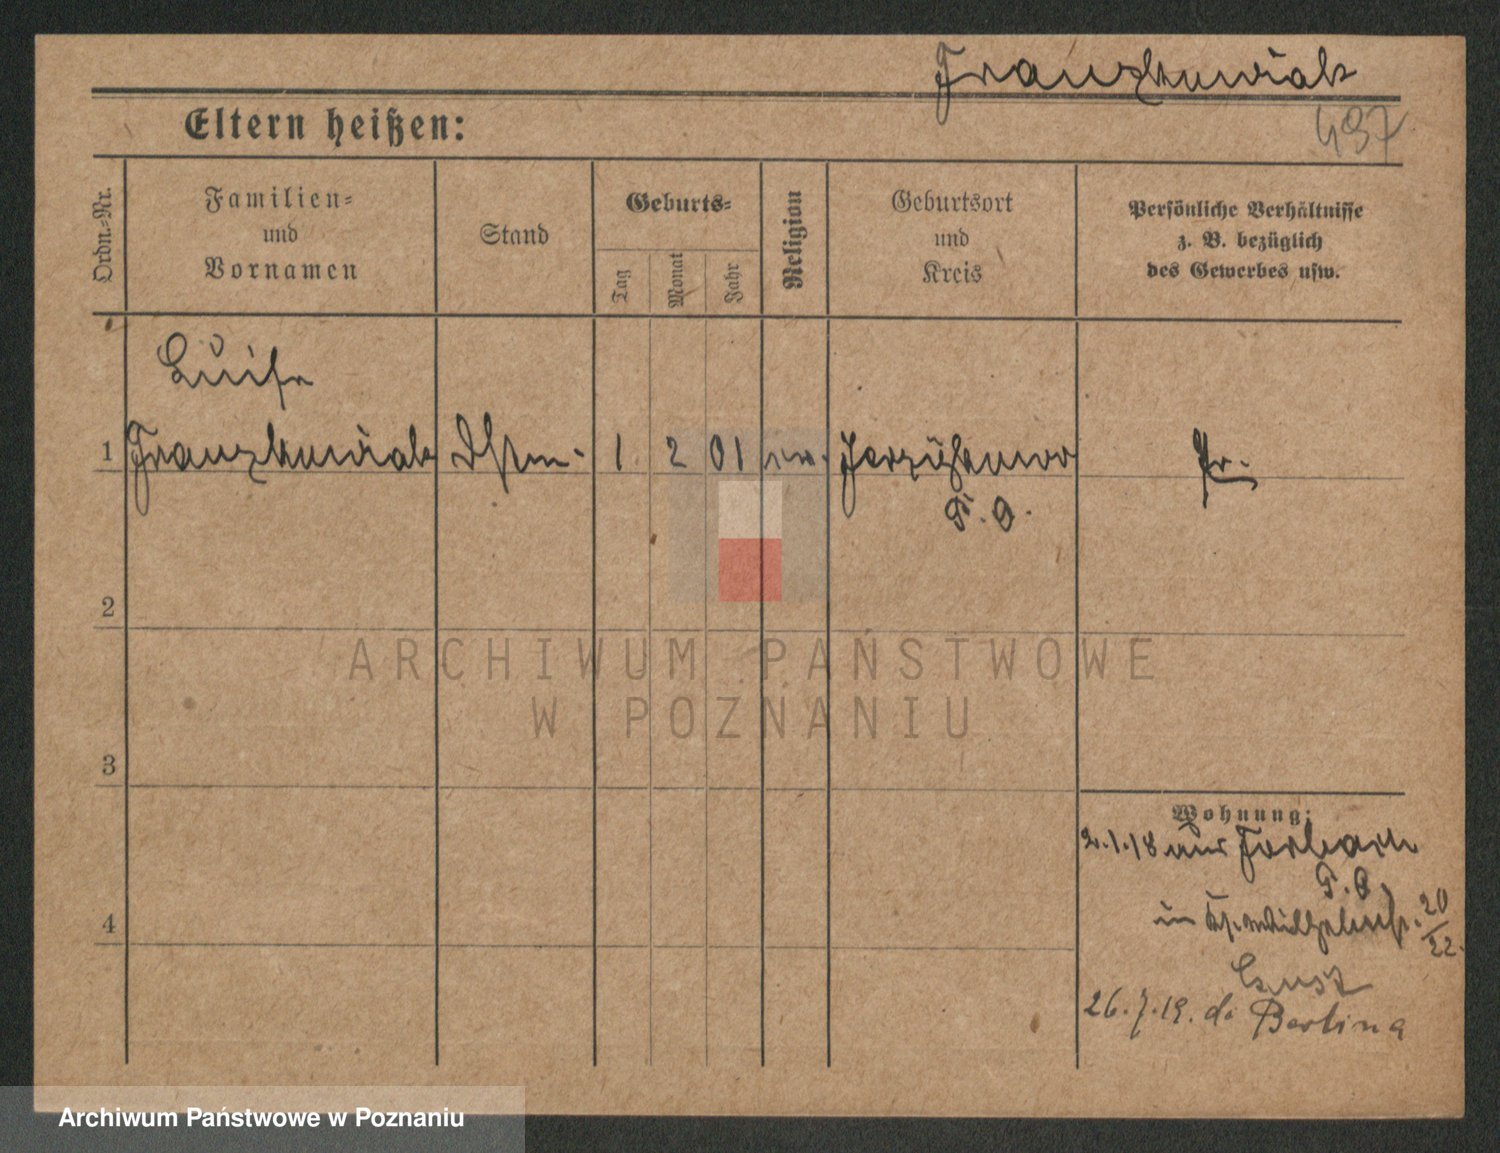 Franzkowiak
497
Eltern heißen:
Ordn.-Nr.
Familien-
und
Vornamen
Stand
Geburts-
Tag
Monat
Jahr
Religion
Geburtsort
und
Kreis
Persönliche Verhältnisse
z. B. bezüglich
des Gewerbes usw.
Luise
1 Franzkowiak 1 2 01 Pr.
P. O.
2
3
4
Wohnung:
2.1.18 aus
P. O.
in 20/22
26.7.19. do Berlina
ARCHIWUM PAŃSTWOWE
W POZNANIU
Archiwum Państwowe w Poznaniu